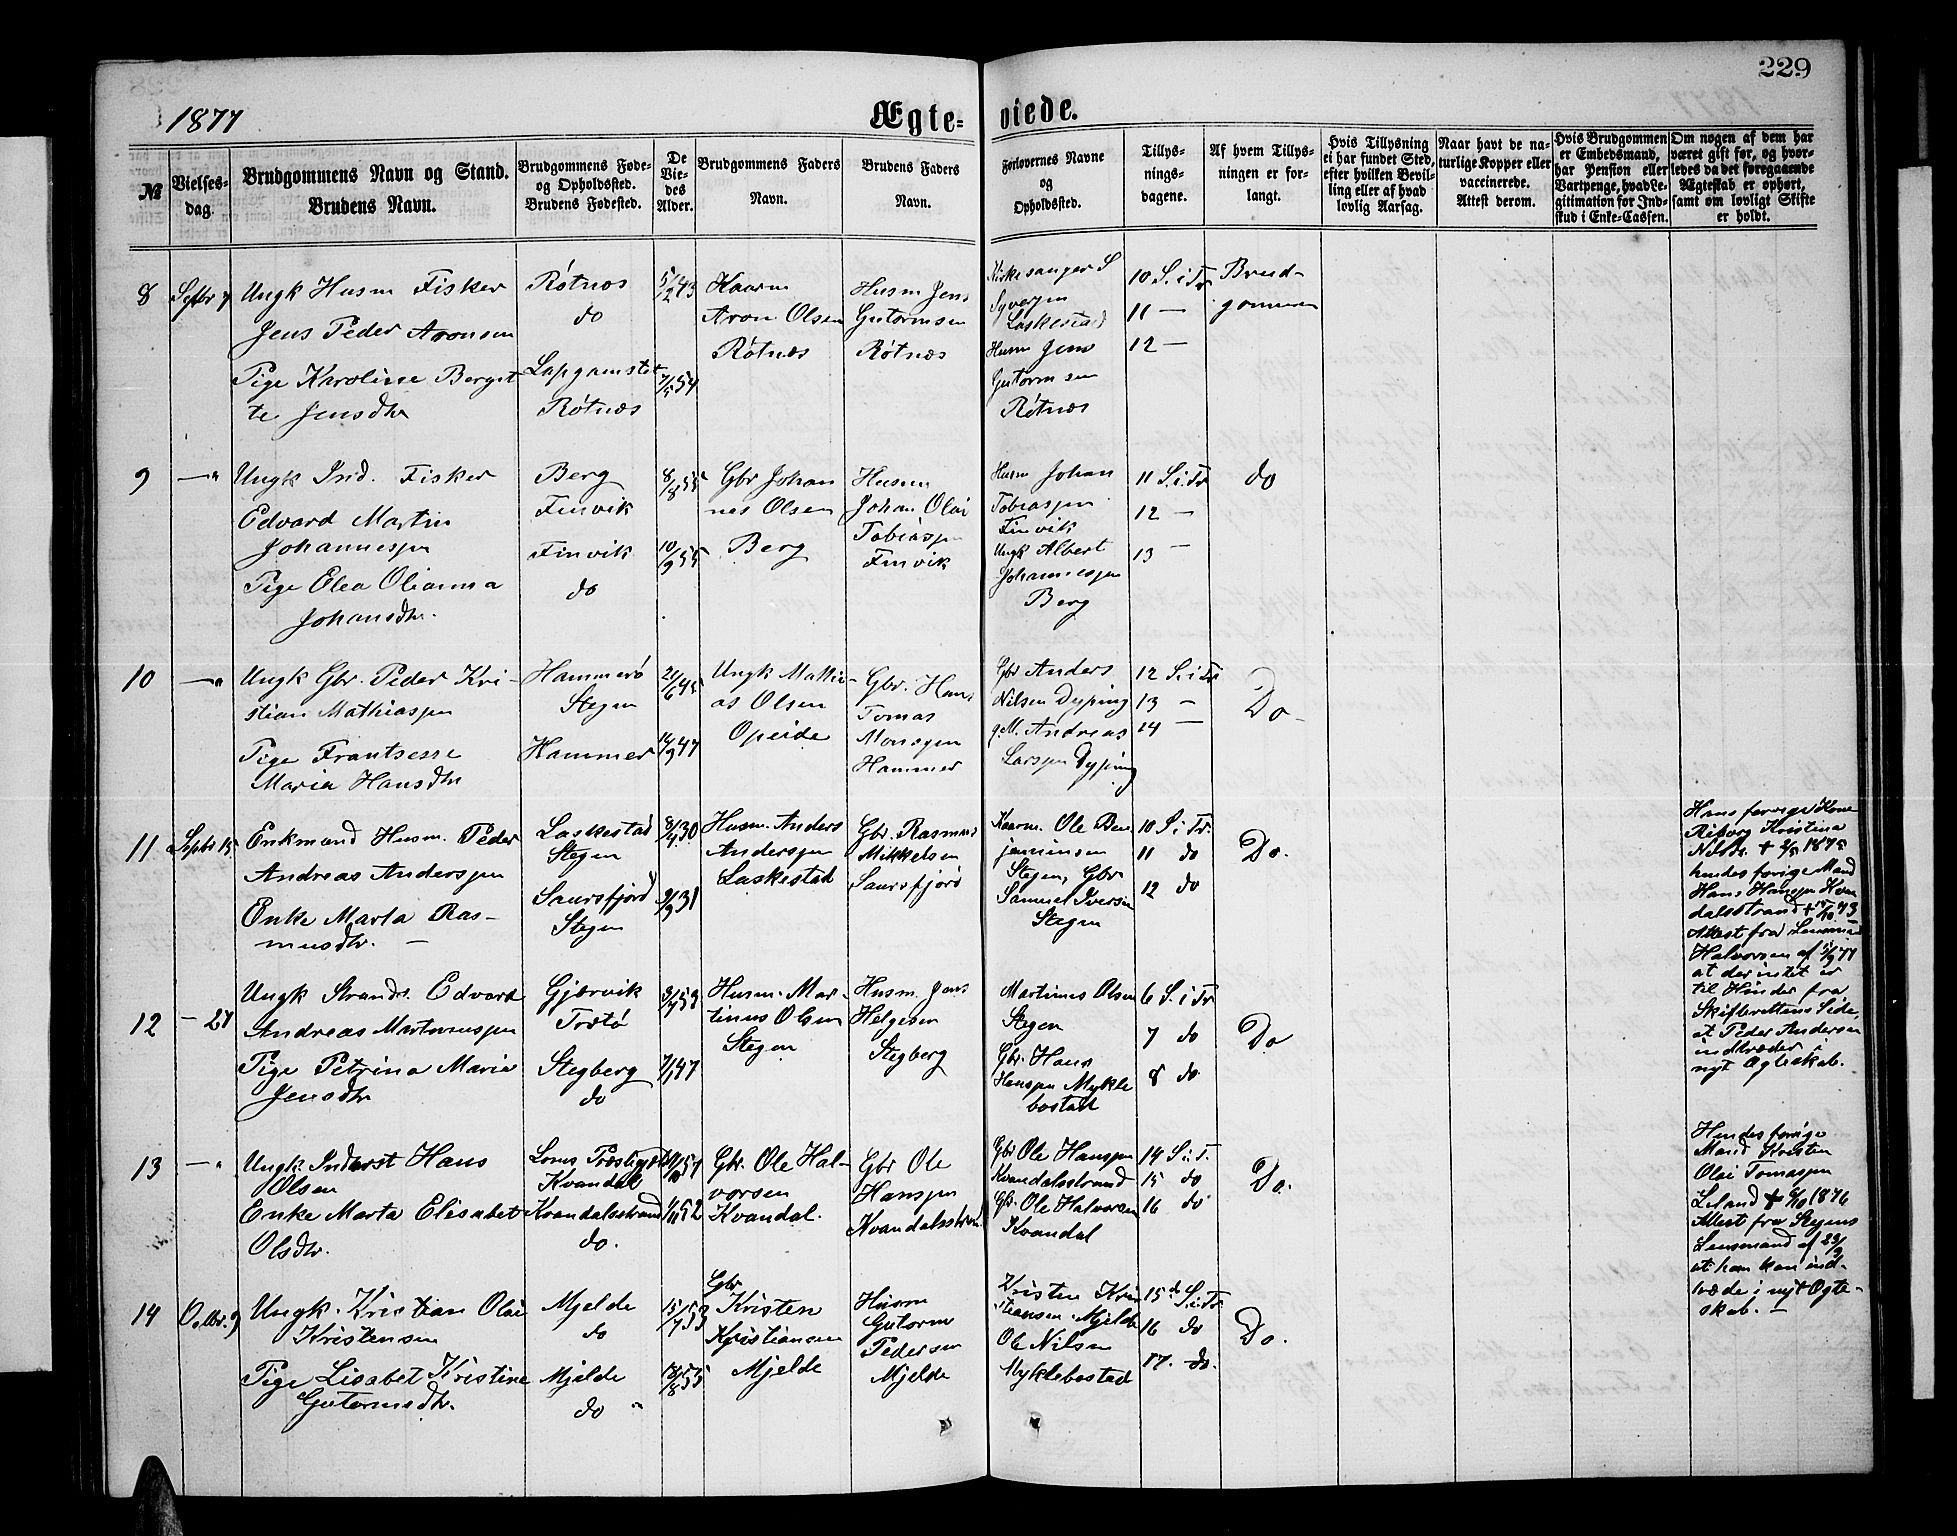 229
1877
Ægte- viede.
№
Vielses-
dag.
Brudgommens Navn og Stand.
Brudens Navn.
Brudgommens Føde-
og Opholdssted.
Brudens Fødested.
De
Vie-
des
Alder.
Brudgommens Faders
Navn.
Brudens Faders
Navn.
Forlovernes Navne
og
Opholdssted.
Tillys-
nings-
dagene.
Af hvem Tillys-
ningen er for-
langt.
Hvis Tillysning
ei har fundet Sted,
efter hvilken Bevil-
ling eller af hvad
lovlig Aarsag.
Naar havt de na-
turlige Kopper eller
vaccinerede.
Attest derom.
Hvis Brudgommen
er Embedsmand,
har Pension eller
Vartpenge, hvad Le-
gitimation for Ind-
skud i Enke-Cassen.
Om nogen af dem har
været gift før, og hvor-
ledes da det foregaaende
Ægteskab er ophørt,
samt om lovligt Skifte
er holdt.
8
Septbr 7
Ungk Husm Fisker
Jens Peder Aronsen
Pige Karolisse Bergit
te Jensdtr
Røtnes
do
Røtnes
5/12 43
7/5 54
Kaarm
Aron Olsen
Røtnæs
Husm Jens
Gutormsen
Røtnæs
Kirkesanger S
Syversen
Laskestad
Husm Jens
Gutormsen
Røtnæs
10 S. i Tr
11 —
12 —
Brud-
gommen
9
—"
Ungk Ind. Fisker
Edvard Martin
Johannessen
Pige Elea Olianna
Johansdtr.
Berg
Finvik
Finvik
do
8/8 55
10/9 55
Gbr Johan
nes Olsen
Berg
Husm
Johan Olai
Tobiassen
Finvik
Husm Johan
Tobiassen
Finvik
Ungk Albert
Johannessen
Berg
11 S. i. Tr
12 —
13 —
do
10
—"
Ungk Gbr. Peder Kri-
stian Mathiassen
Pige Frantsesse
Maria Hansdtr
Hammerø
Stegen
Hammer
21/6 45
14/9 47
Ungk Mathi-
as Olsen
Opeide
Gbr. Hans
Tomas
Monssen
Hammer
Gbr Anders
Nilsen Dyping
g.M. Andreas
Larssen Dyping
12 S. i Tr
13 —
14 —
Do
11
Septbr 15
Enkmand Husm. Peder
Andreas Anderssen
Enke Marta Ras-
musdtr. —
Laskestad
Stegen
Saursfjord
Stegen
8/4 30
9/9 31
Husm. Anders
Anderssen
Laskestad
Gbr. Rasmus
Mikkelsen
Saursfjord
Kaarm. Ole Ben
jaminsen
Stegen, Gbr
Samuel Iversen
Stegen
10 S. i Tr.
11 do
12 do
Do.
Hans forrige Kone
Kristina
Nilsdr. + 2/5 1875
hendes forrige Mand
Hans Hansen Kvan
dalsstrand + 14/10 73
Attest fra Lensmand
Halvorsen af 5/9 77
at der intet er
til Hinder fra
Skifterettens Side,
at Peder Andersen
indtræder i
nyt Ægteskab.
12
— 27
Ungk Strands. Edvard
Andreas Martinussen
Pige Petrina Marie
Jensdtr
Gjørvik
Trotø
Stegberg
do
3/4 53
7/1 47
Husm. Mar-
tinus Olsen
Stegen
Husm. Jens
Helgesen
Stegberg
Martines Olsen
Stegen
Gbr. Hans
Hanssen Mykle
bostad
6 S. i Tr
7 do
8 do
Do
13
—"
Ungk Inderst Hans
Olsen
Enke Marta Elisabet
Olsdtr.
Kvandal
Kvandalsstrand
do.
1/11 52
Gbr. Ole Hal-
vorsen
Kvandal.
Gbr Ole
Hanssen
Kvandalsstrand
Gbr Ole Hanssen
Kvandalsstrand
Gbr. Ole Halvorsen
Kvandal
14 S. i T.
15 do
16 do
Do.
Hendes forrige
Mand Kristen
Olai Tomassen
Leland + 6/10 1876
Attest fra Stegens
Lensmand af 23/9
at hun kan ind-
træde i nyt Ægte-
skab. —
14
Octbr. 9
Ungk. Kristian Olai
Kristensen
Pige Lisabet Kristine
Gutormsdtr.
Mjelde
do
Mjelde
do "
15/7 53
18/8 55
Gbr
Kristen
Kristiansen
Mjelde
Husm
Gutorm
Pedersen
Mjelde
Kristen Kri
stiansen Mjelde
Ole Nilsen
Myklebostad
15de S. i Tr
16 do
17. do.
Do.